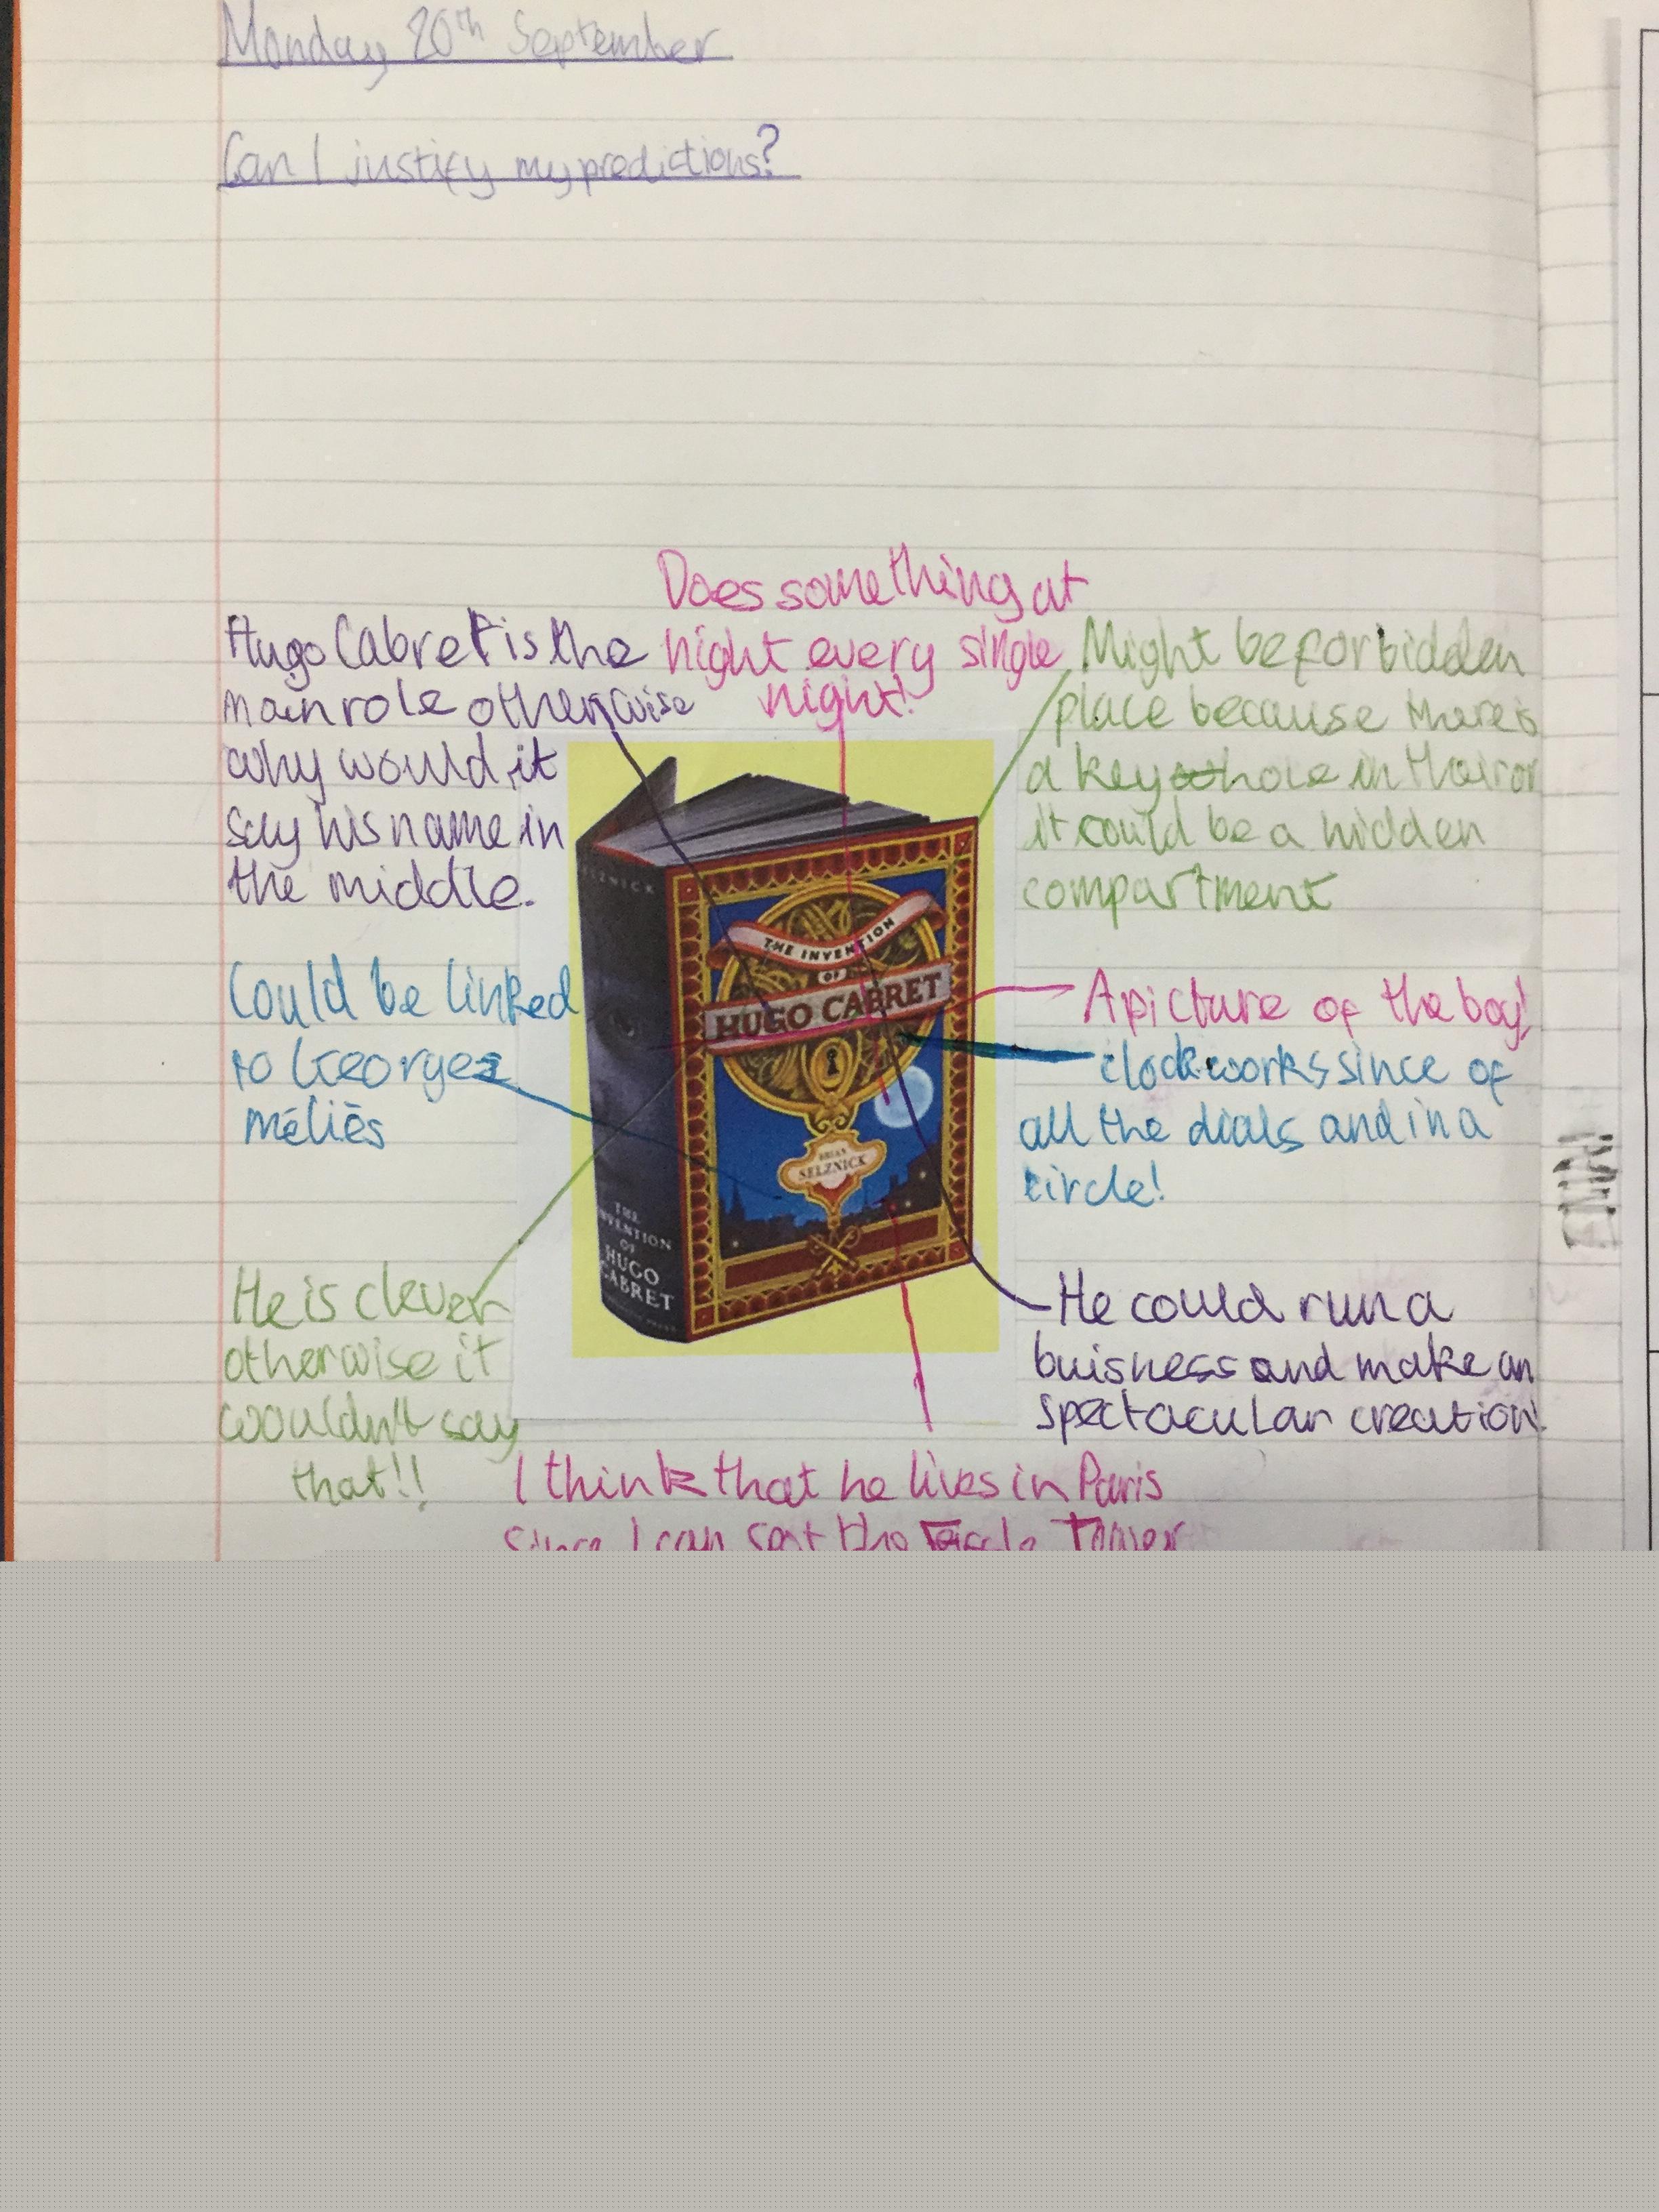 Monday 20th September
Can I justify my predictions?
Does something at
night every single
night!
Hugo Cabret is the
main role otherwise
why would it
say his name in
the middle.
Might be forbidden
place because there is
a key hole in the
it could be a hidden
compartment
Could be linked
to Georges
méliès
A picture of the boy!
clockworks since of
all the dials and in a
circle!
He is clever
otherwise it
wouldn't say
that!!
He could run a
buisness and make an
spectacular creation!
I think that he lives in Paris
since I can spot the Tower
SELZNICK
THE
INVENTION
OF
HUGO
CABRET
THE INVENTION
OF
HUGO CABRET
BRIAN
SELZNICK